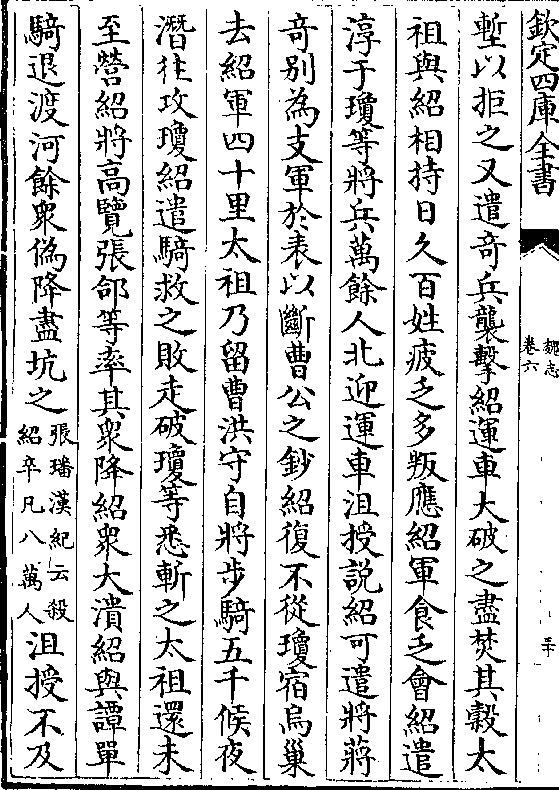 欽定四庫全書
魏志
卷六
三十
塹以拒之又遣奇兵襲擊紹運車大破之盡焚其穀太
祖與紹相持日久百姓疲乏多叛應紹軍食乏會紹遣
淳于瓊等將兵萬餘人北迎運車沮授説紹可遣將蔣
奇别為支軍於表以斷曹公之鈔紹復不從瓊宿烏巢
去紹軍四十里太祖乃留曹洪守自將步騎五千候夜
潛往攻瓊紹遣騎救之敗走破瓊等悉斬之太祖還未
至營紹將高覽張郃等率其衆降紹衆大潰紹與譚單
騎退渡河餘衆偽降盡坑之張璠漢紀云殺紹卒凡八萬人沮授不及